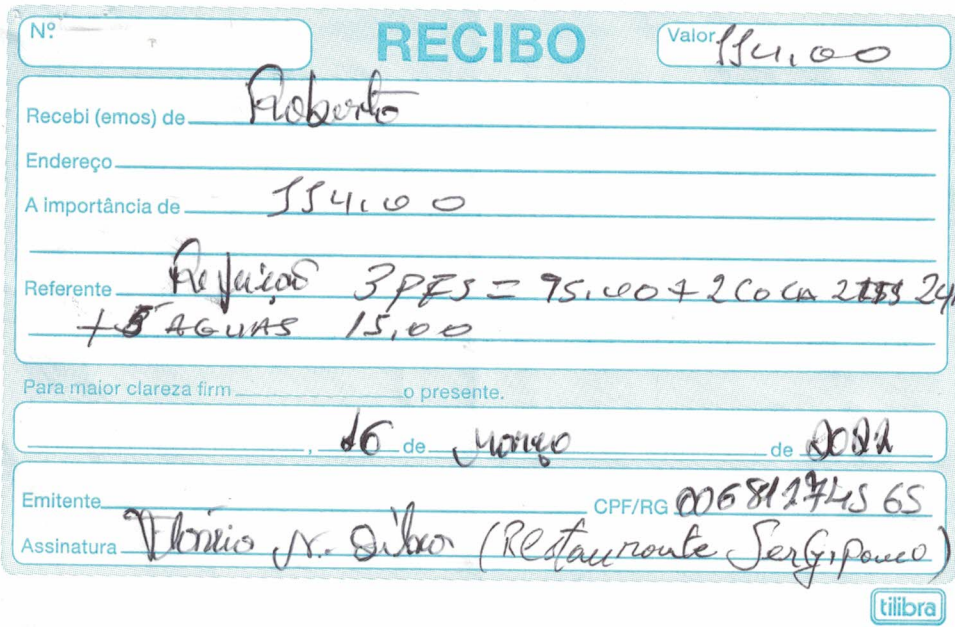 Nº RECIBO Valor 114,00
Recebi (emos) de Roberto
Endereço
A importância de 114,00
Referente Refeição 3 PFS = 75,00 + 2 COCA 24,
+ 5 AGUAS 15,00
Para maior clareza firm o presente.
16 de março de 2022
Emitente CPF/RG
Assinatura N. Silva (Restaurante Sergipano)
tilibra